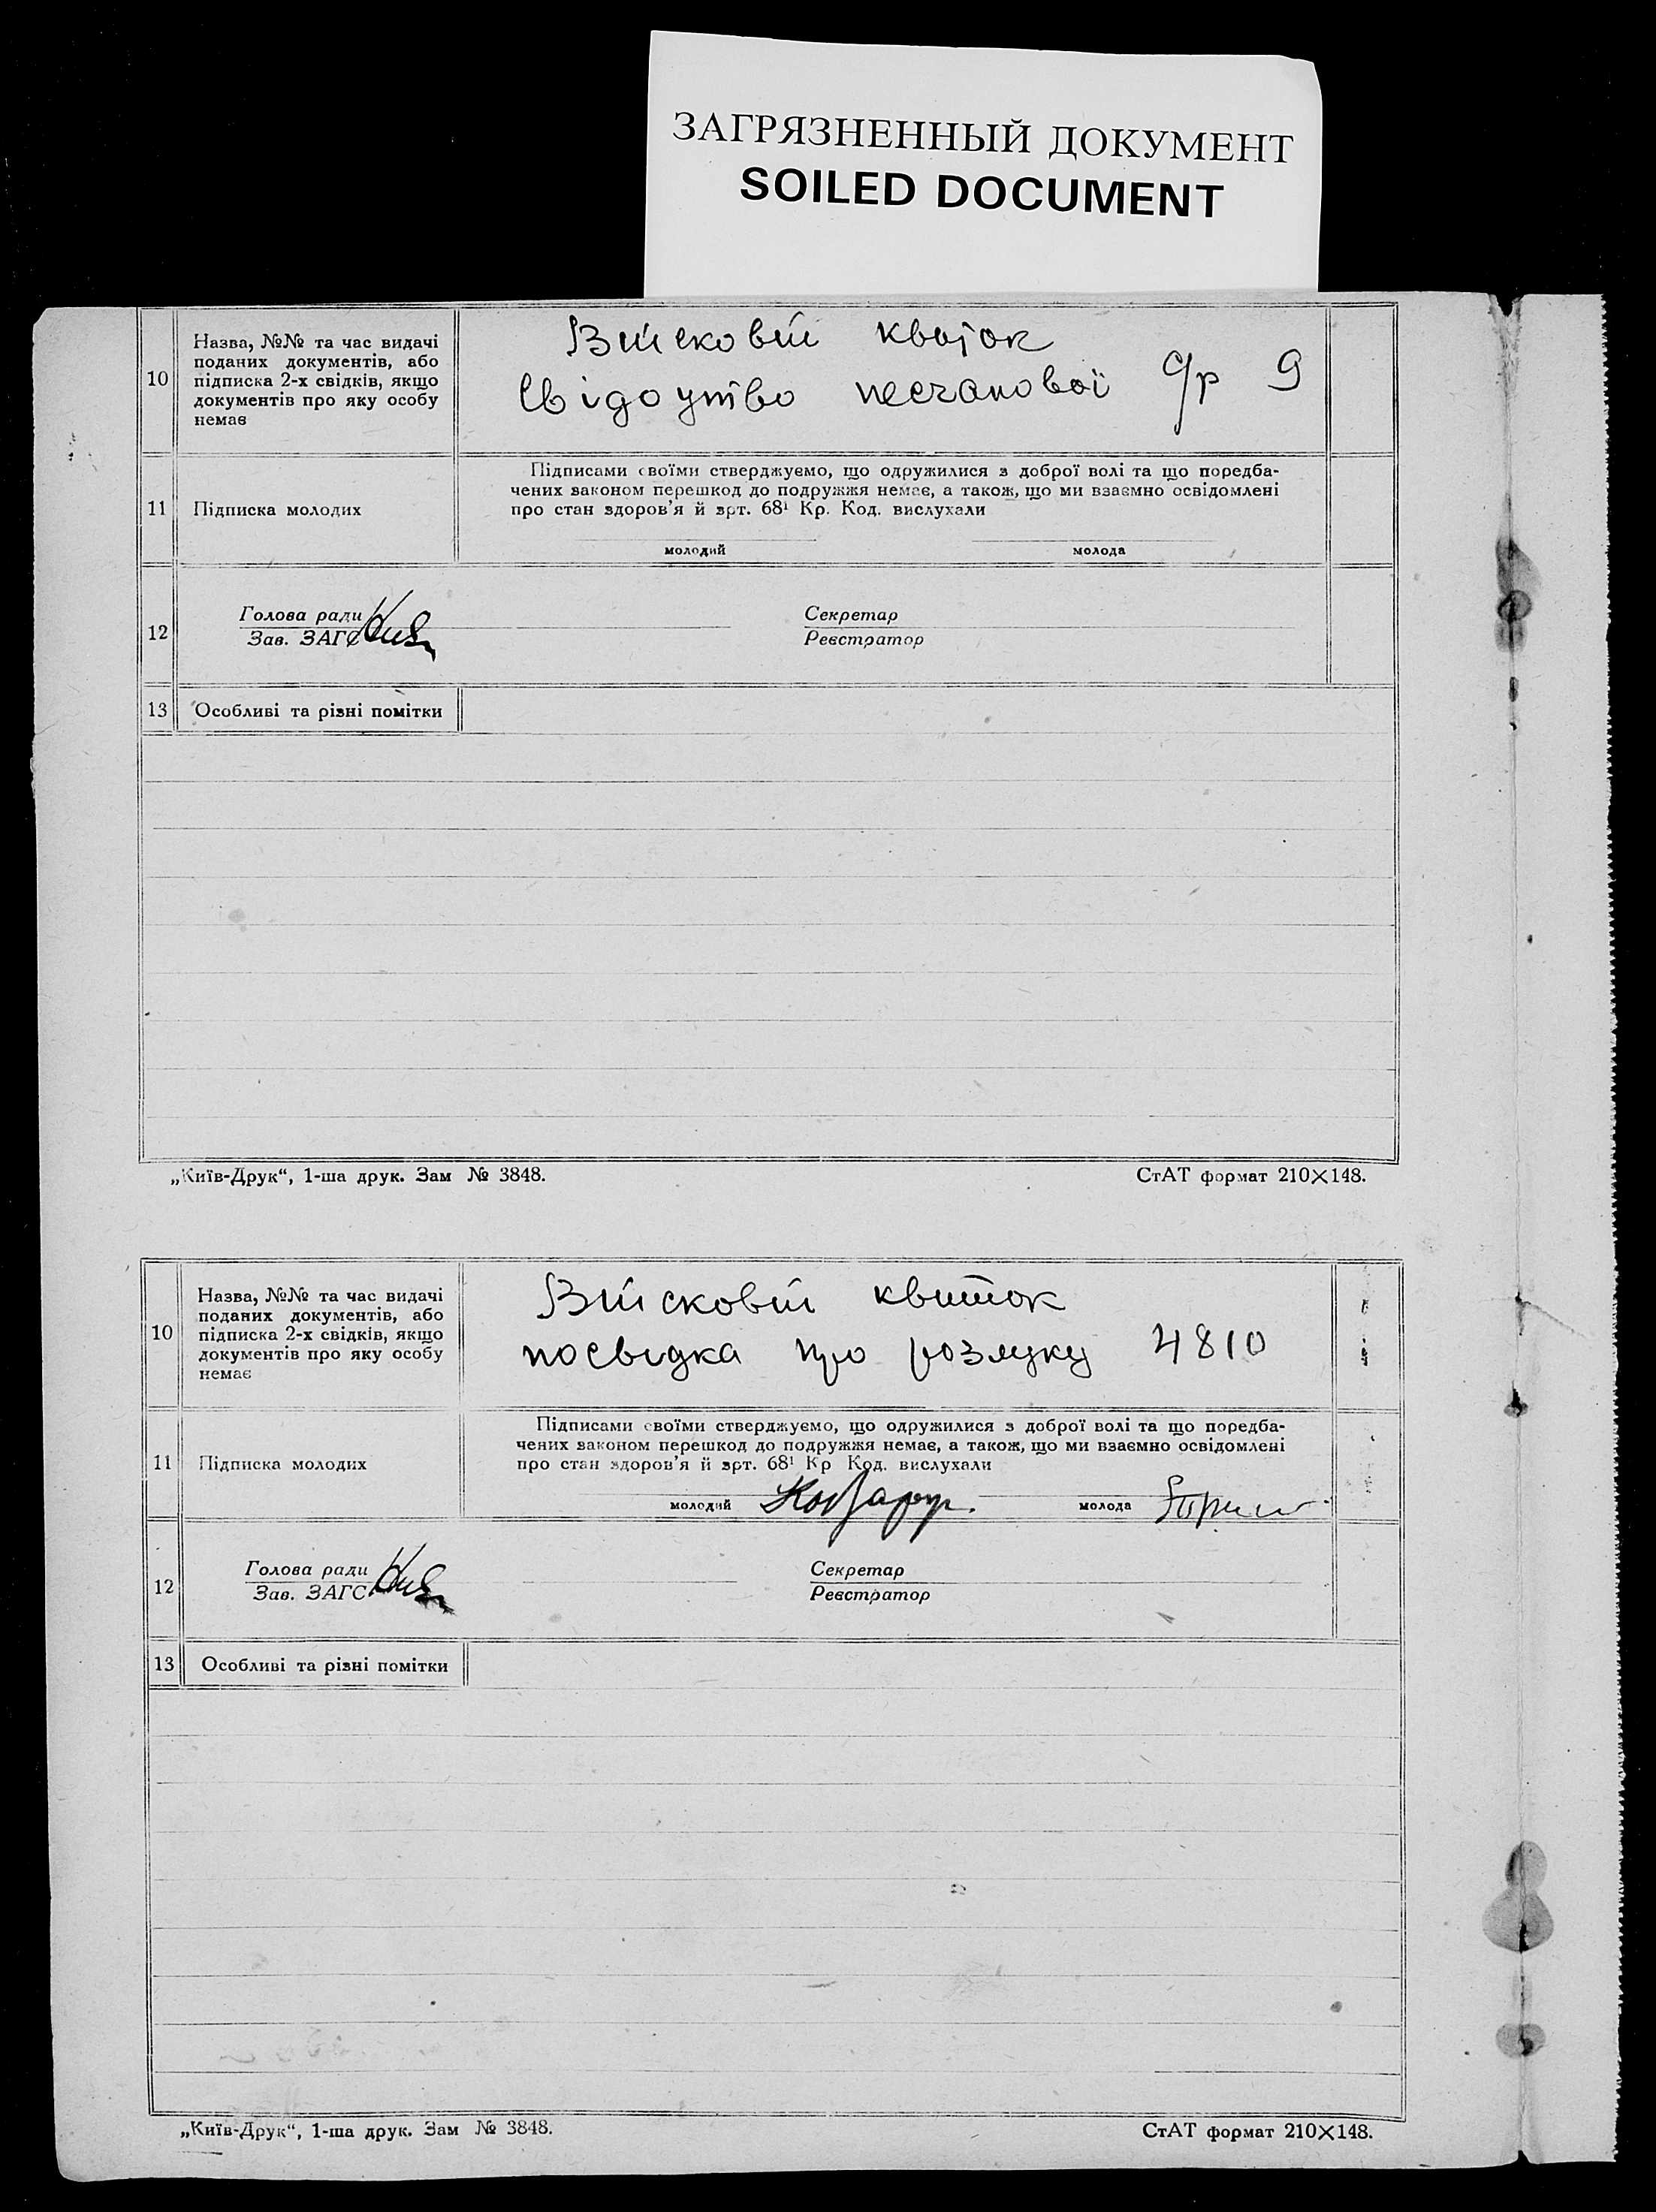 ЗАГРЯЗНЕННЫЙ ДОКУМЕНТ
SOILED DOCUMENT
10
Назва, №№ та час видачі
поданих документів, або
підписка 2-х свідків, якщо
документів про яку особу
немає
Військовій квиток
Свідоутво с/р 9
11
Підписка молодих
Підписами своїми стверджуємо, що одружилися з доброї волі та що поредба-
чених законом перешкод до подружжя немає, а також, що ми взаємно освідомлені
про стан здоров'я й арт. 68¹ Кр. Код. вислухали
молодий молода
12
Голова ради
Зав. ЗАГС
Секретар
Реєстратор
13 Особливі та різні помітки
„Київ-Друк“, 1-ша друк. Зам № 3848. СтАТ формат 210×148.
10
Назва, №№ та час видачі
поданих документів, або
підписка 2-х свідків, якщо
документів про яку особу
немає
Військовій квиток
посвідка про розлуку 4810
11
Підписка молодих
Підписами своїми стверджуємо, що одружилися з доброї волі та що поредба-
чених законом перешкод до подружжя немає, а також, що ми взаємно освідомлені
про стан здоров'я й арт. 68¹ Кр Код. вислухали
молодий молода
12
Голова ради
Зав. ЗАГС
Секретар
Реєстратор
13 Особливі та різні помітки
„Київ-Друк“, 1-ша друк. Зам № 3848. СтАТ формат 210×148.